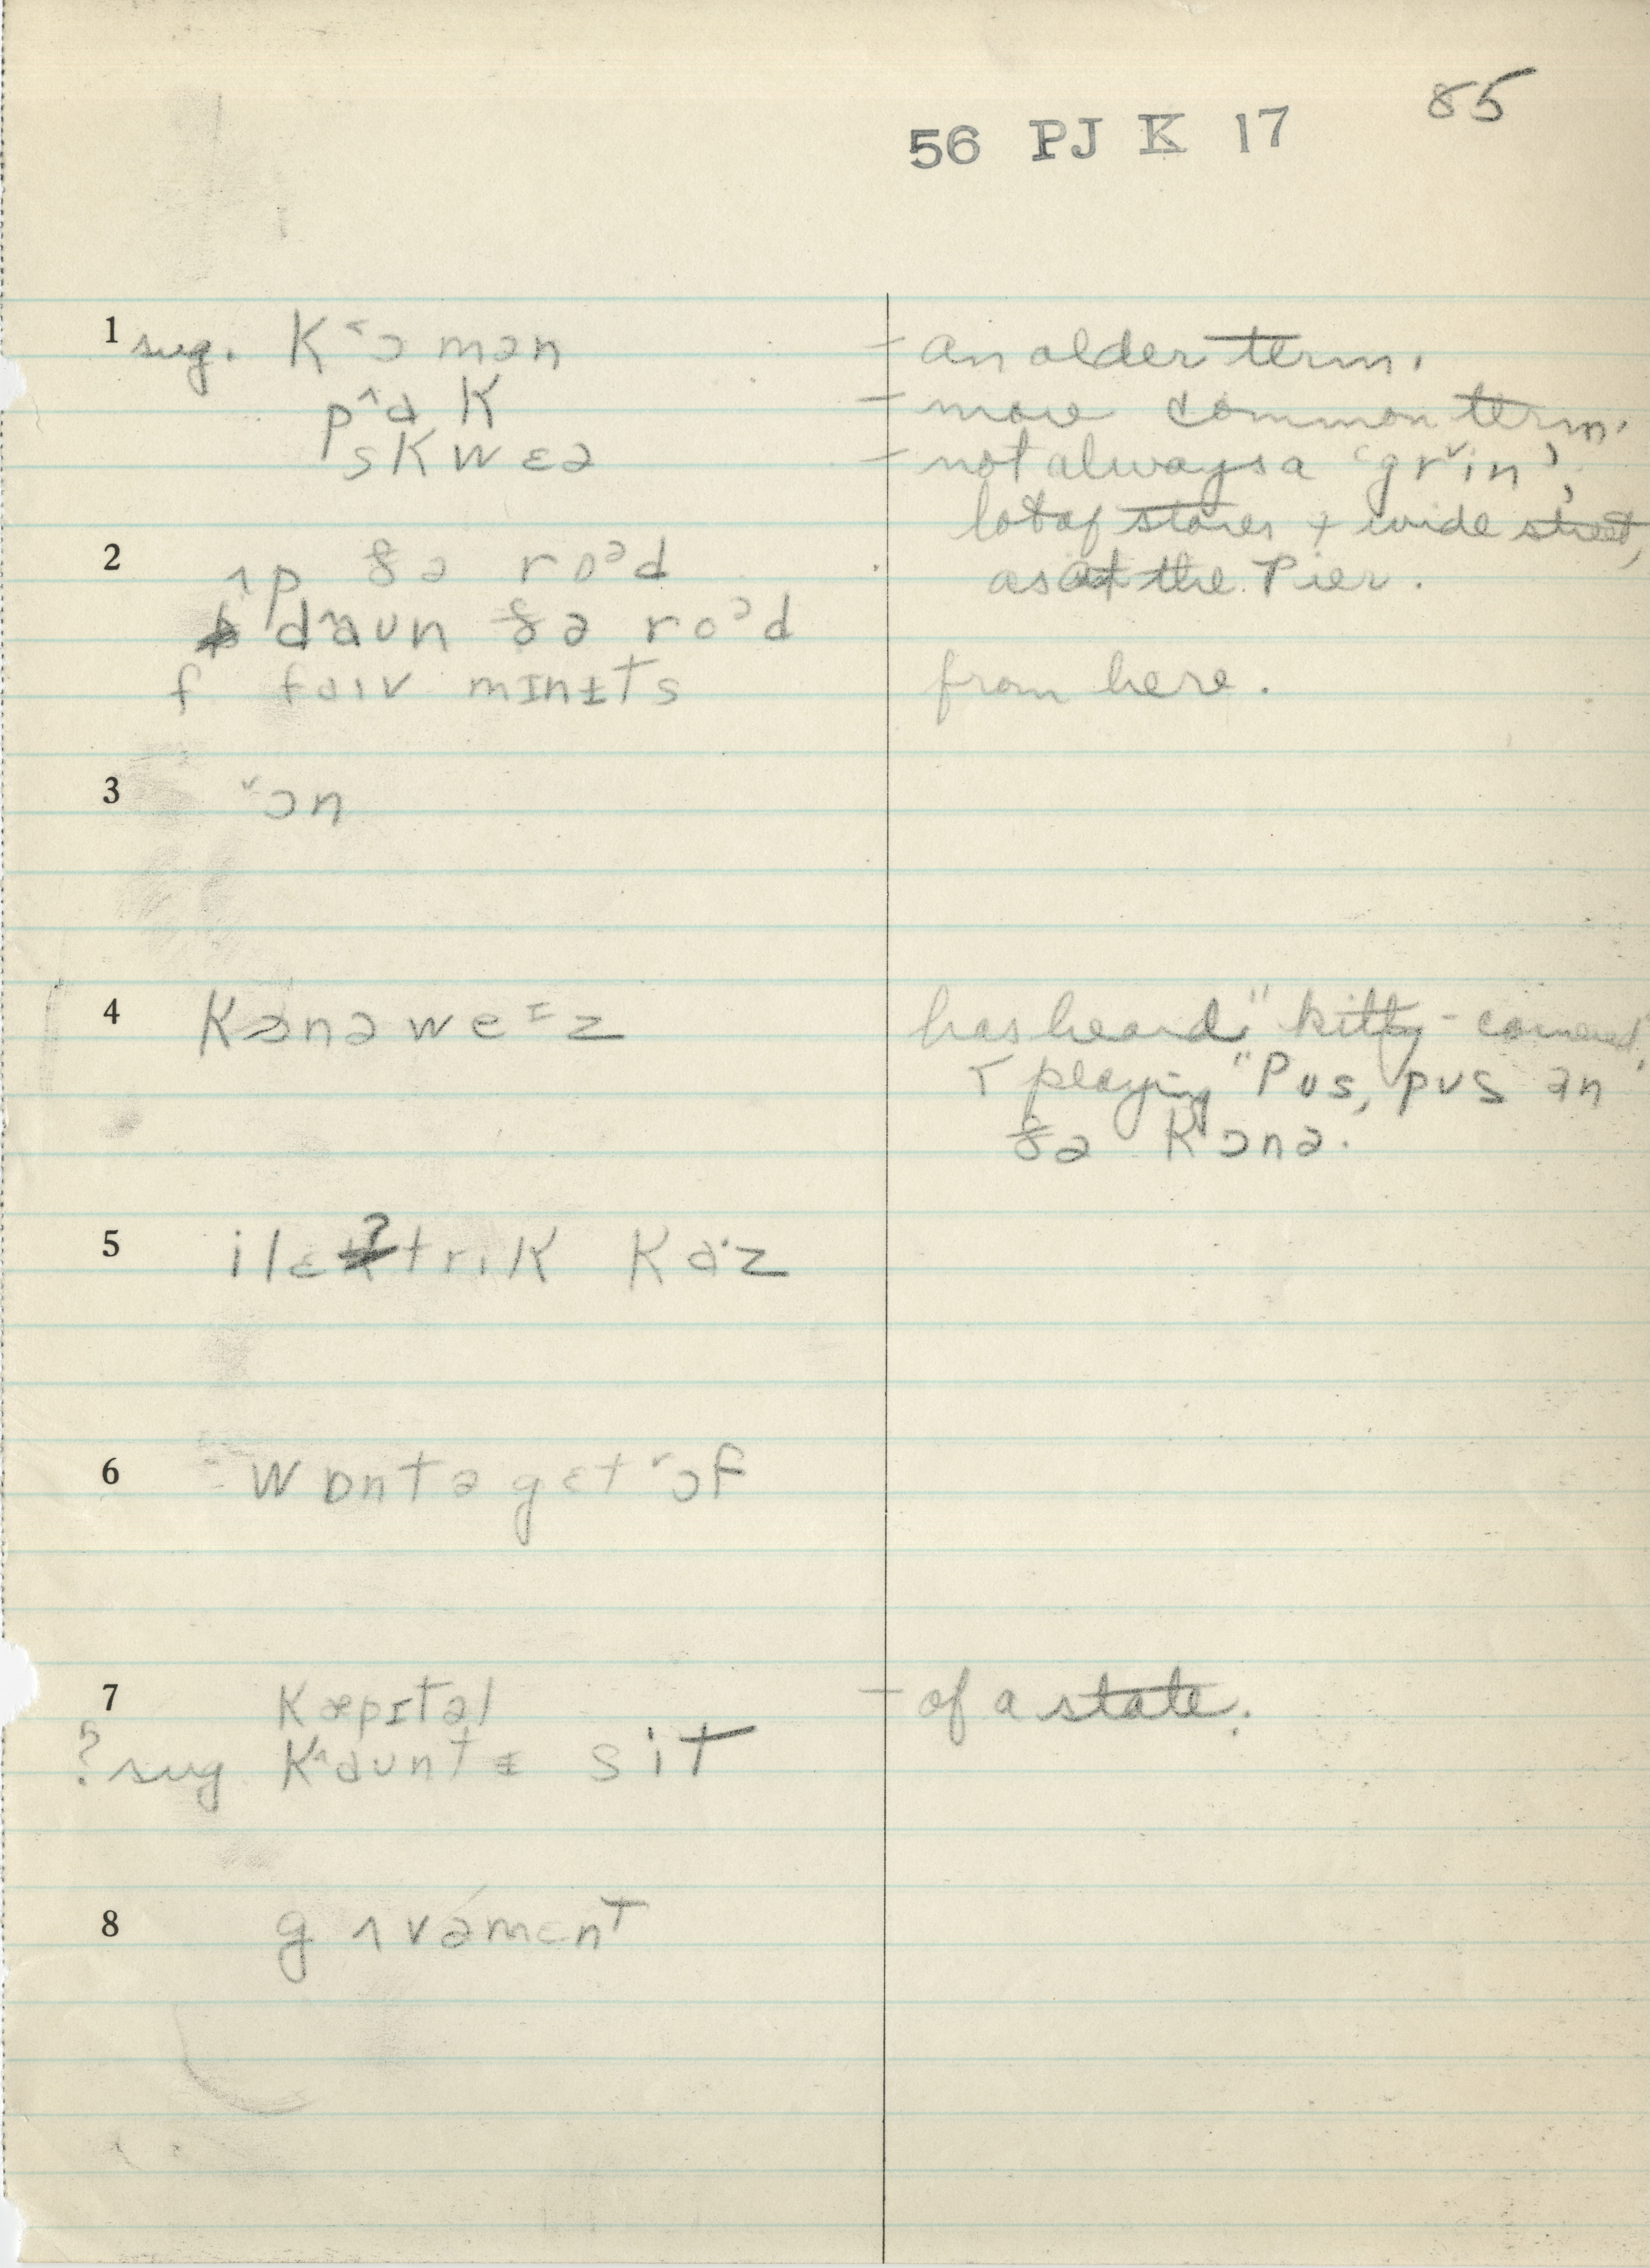 85
56 PJ K 17
1 sug. K˂ɔmən - an older term.
p^ɑK - more common term.
sKwɛə - not always a 'gr˅in',
lot of stores + wide street,
2 ʌp ðə roᵊd as at the Pier.
d^ɑun ðə roᵊd
f faɪv mɪnɨts from here.
3 ˅ɔn
4 Kɔnəweᶦz has heard "kitty-cornered"
playing "Pus, pus ɪn
ðə Kɔnə.
5 ilɛʔtrɪK Kɑ·z
6 wɒntə gɛt ˅ɔf
7 Kæpɪtəl - of a state.
? sug K^ɑuntɨ sit
8 gʌvəmɛnt